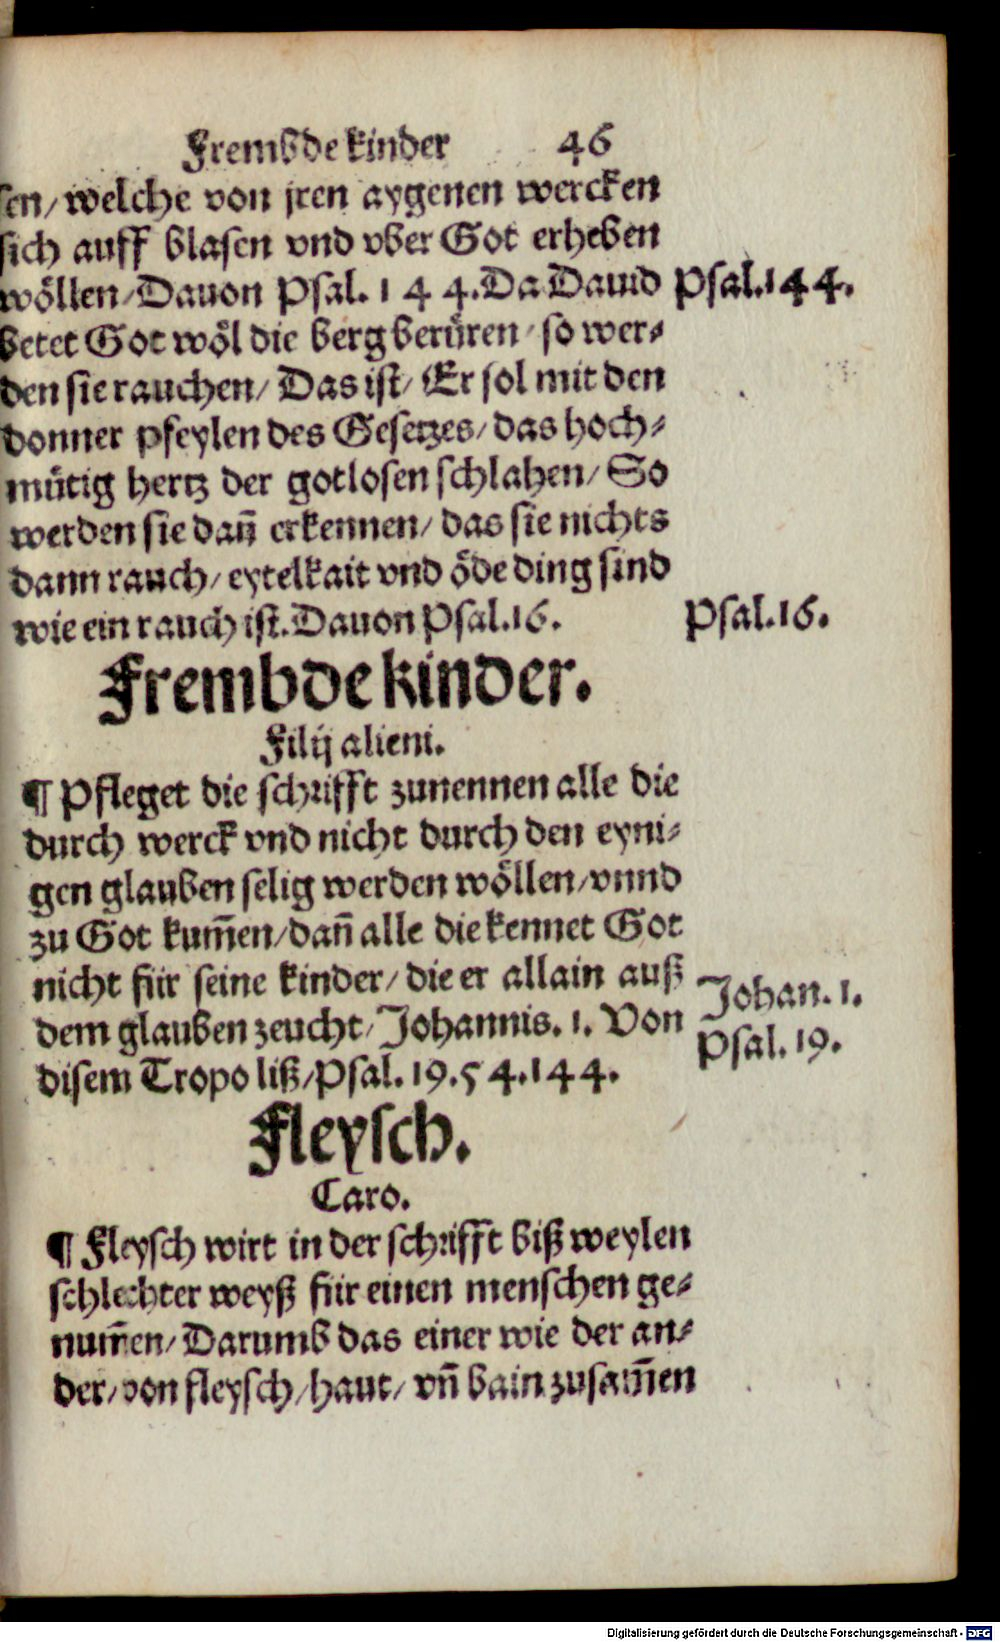 Frembde kinder 46
sen/ welche von jren aygenen wercken
sich auff blasen vnd vber Got erheben
wöllen/ Dauon Psal. 1 4 4. Da Dauid Psal. 144.
betet Got wöl die berg berüren/ so wer⸗
den sie rauchen/ Das ist/ Er sol mit den
donner pfeylen des Gesetzes/ das hoch⸗
mütig hertz der gotlosen schlahen/ So
werden sie dañ erkennen/ das sie nichts
dann rauch/ eytelkait vnd öde ding sind
wie ein rauch ist. Dauon Psal. 16. Psal. 16.
Frembde kinder.
Filij alieni.
¶ Pfleget die schrifft zunennen alle die
durch werck vnd nicht durch den eyni⸗
gen glauben selig werden wöllen/ vnnd
zu Got kum̃en/ dañ alle die kennet Got
nicht für seine kinder/ die er allain auß
dem glauben zeucht/ Johannis. 1. Von Johan. 1.
disem Tropo liß/ Psal. 19. 5 4. 144. Psal. 19.
Fleysch.
Caro.
¶ Fleysch wirt in der schrifft bißweylen
schlechter weyß für einen menschen ge⸗
num̃en/ Darumb das einer wie der an⸗
der/ von fleysch/ haut/ vñ bain zusam̃en
Digitalisierung gefördert durch die Deutsche Forschungsgemeinschaft - DFG